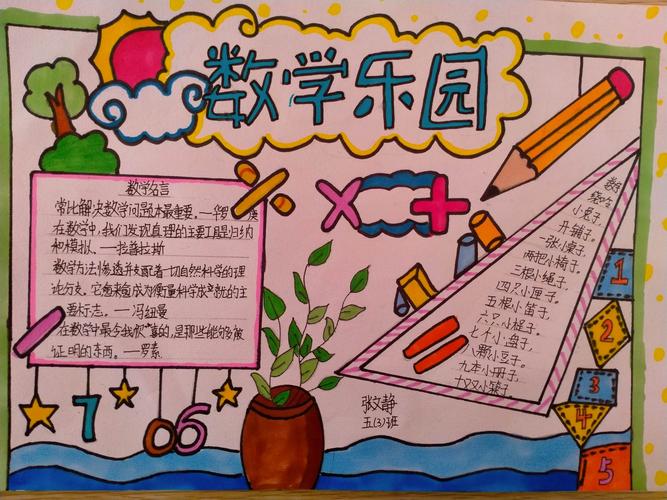 数学乐园
数学名言
常比解决数学问题本最重要。—华罗庚
在数学中,我们发现真理的主要工具是归纳
和模拟。—拉普拉斯
数学方法渗透并支配着一切自然科学的理
论分支。它愈来愈成为衡量科学成就的主
要标志。—冯纽曼
在数学中最令我欣喜的,是那些能够被
证明的东西。—罗素
7 0 6
数学
小兔子,
开铺子。
一张小桌子,
两把小椅子,
三根小绳子,
四只小匣子,
五根小笛子,
六只小梃子,
七个小盘子,
八颗小豆子,
九本小册子,
十双小筷子。
1
2
3
4
5
张文静
五(3)班